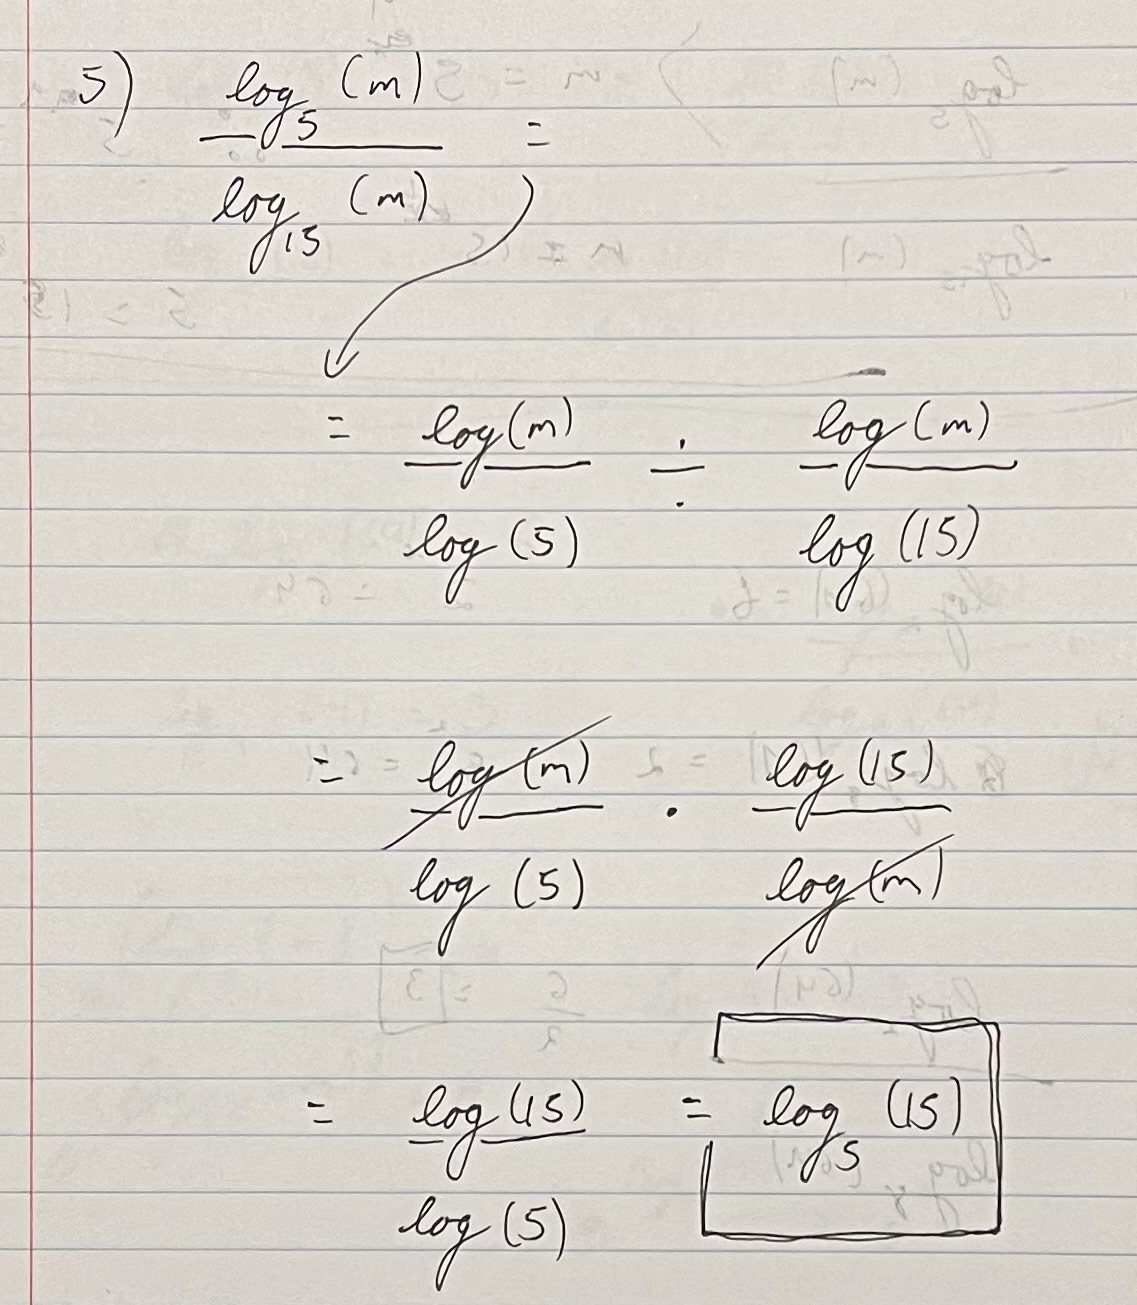 5) log₅ (m) =
log₁₅ (m)
= log (m) ÷ log (m)
log (5) log (15)
= log (m) · log (15)
log (5) log (m)
= log (15) = log₅ (15)
log (5)